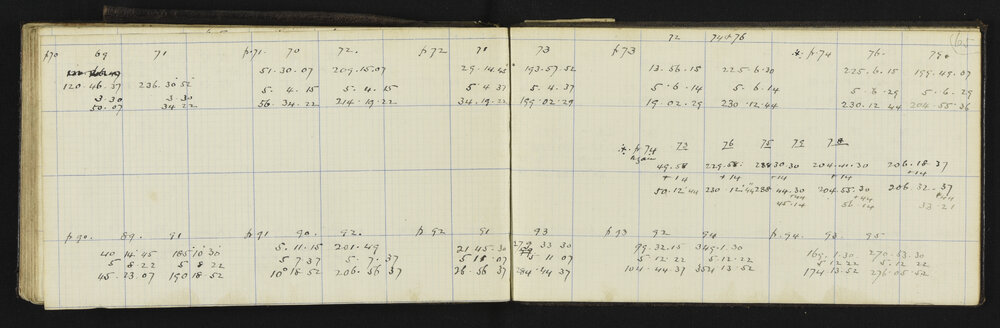 65
p70 69 71 p.71. 70 72. p72 71 73 p73 72 74+76 *. p74 76. 78a
51.30.07 209.15.07 29.14.45 193.57.52 13.56.15 225.6.30 225.6.15 199.49.07
120.46.37 236.30.52 5.4.15 5.4.15 5.4.37 5.4.37 5.6.14 5.6.14 5.6.29 5.6.29
3.30 3 30 56.34.22 214.19.22 34.19.22 199.02.29 19.02.29 230.12.44 230.12 44 204.55.36
50.07 34.22
*. p.74 73 76 75 79 78
Again
49.58 229.58 30.30 204.41.30 206.18.37
+14 +14 +14 +14 +14
50.12 44 230.12 44 44.30 204.55.30 206 32.37
+44 +44 +44
45.14 56 14 33 21
p90. 89. 91 p91 90. 92. p92 91 93 p93 92 94 p.94. 93. 95.
40 14.45 185.10.30 5.11.15 201.49 21 45.30 279 33 30 99.32.15 349.1.30 169.1.30 270.53.30
5 8.22 5 8 22 5 7 37 5.7.37 5 11.07 5 11 07 5.12.22 5.12.22 5.12 22 5.12 22
45.23.07 190 18 52 10° 18 52 206.56 37 26 56 37 284.44 37 104.44 37 354 13.52 174 13.52 276 05 52